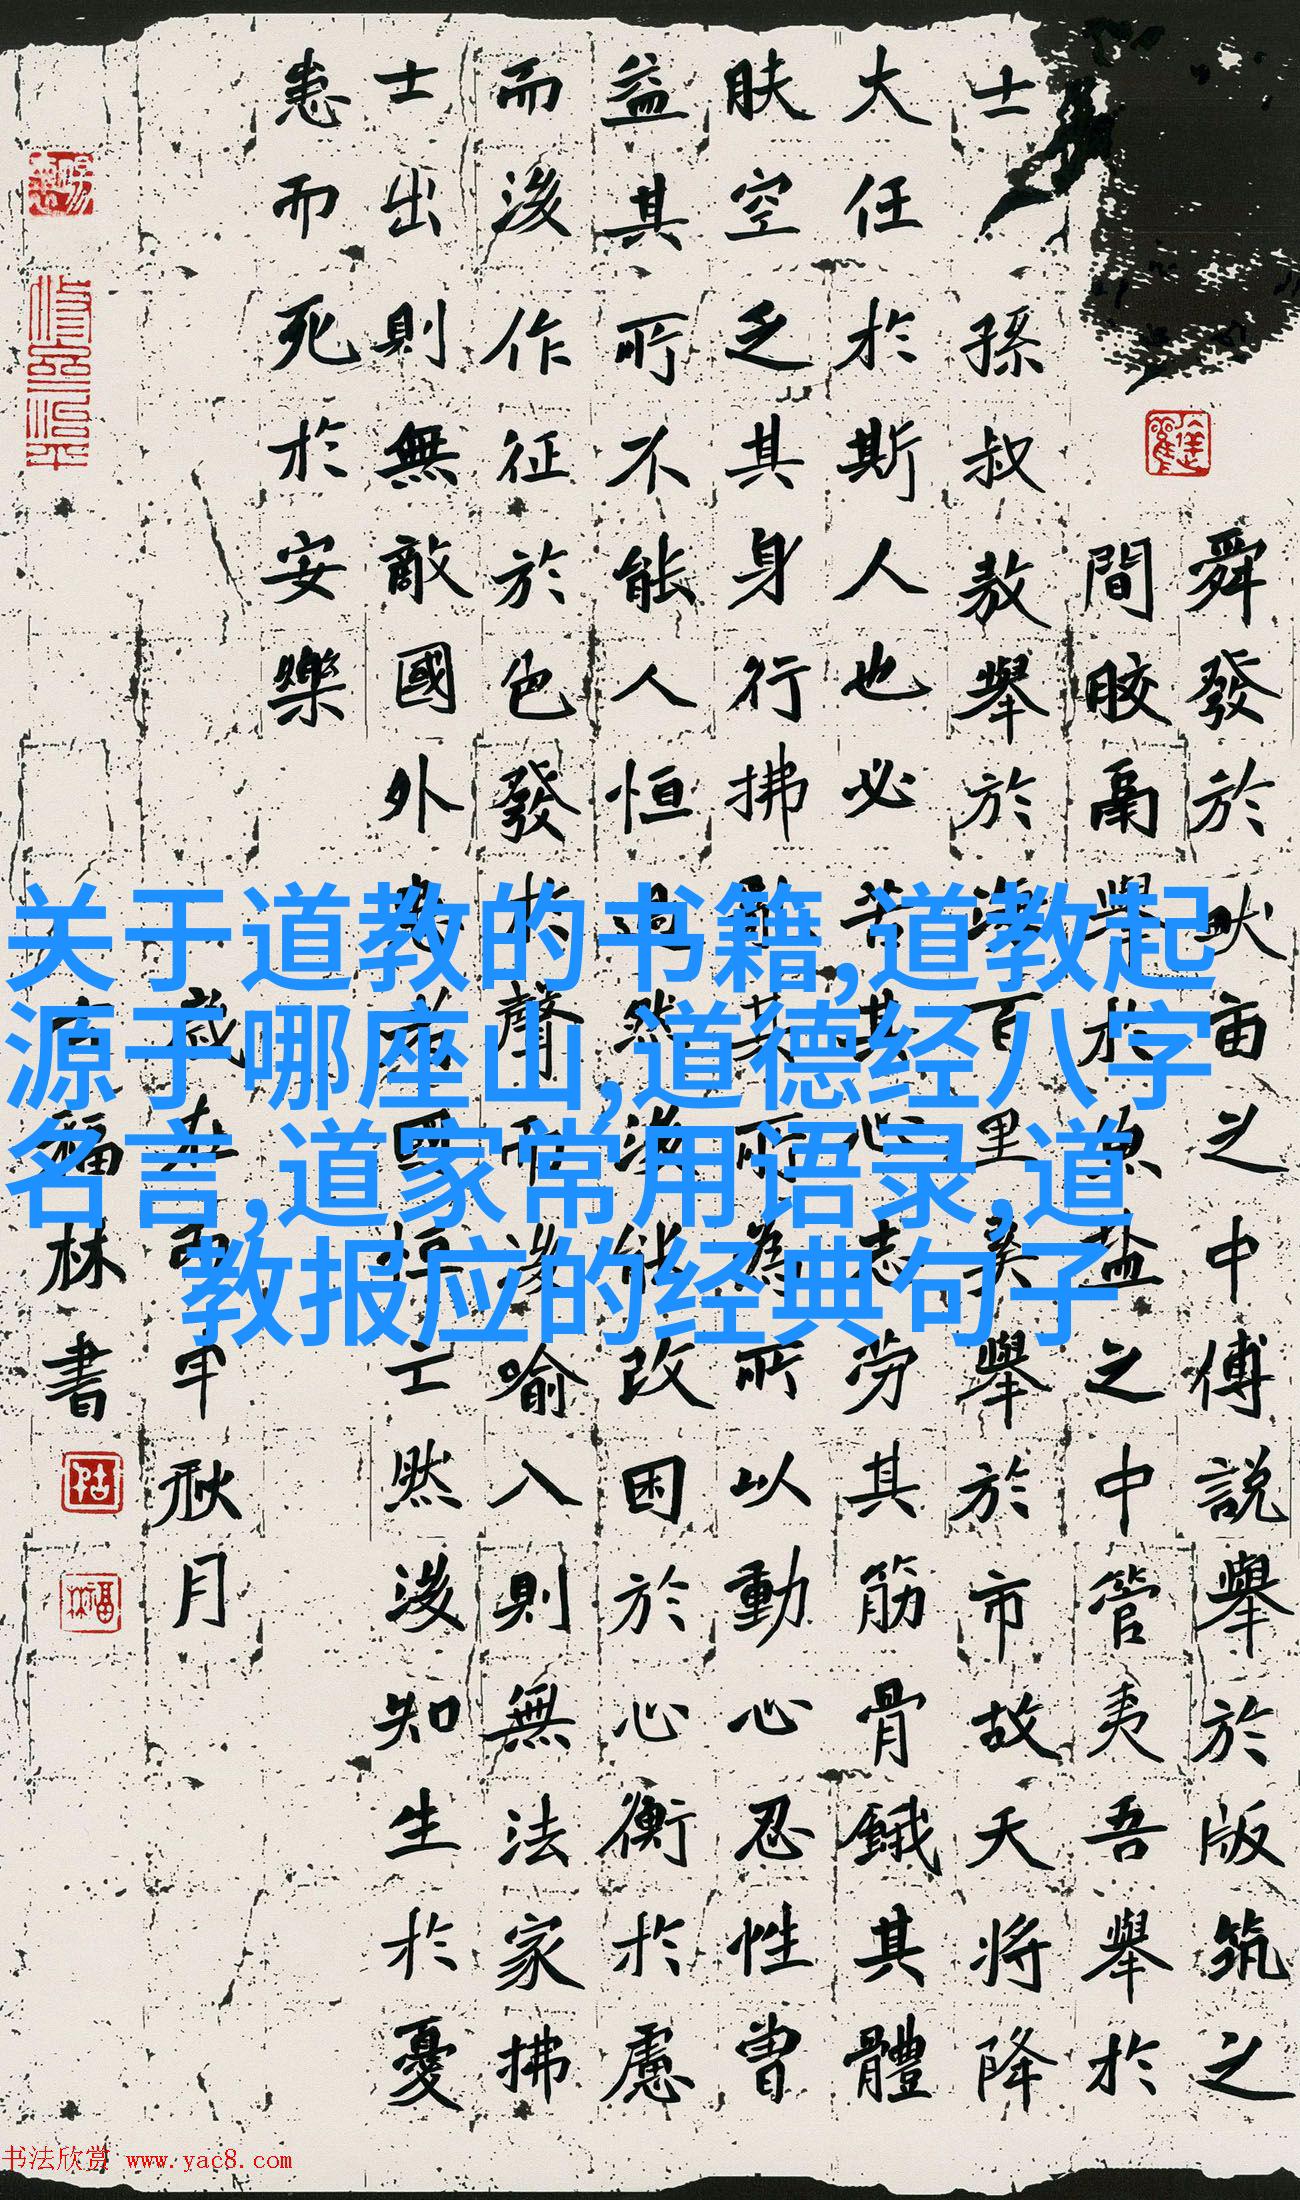 舜發於畎亩之中傅説舉於版筑之
間膠鬲舉於魚盐之中管夷吾舉於
士孫叔敖舉於海百里奚舉於市故天將降
大任於斯人也必苦其心志劳其筋骨餓其體
肤空乏其身行拂亂其所為所以動心忍性曾
益其所不能人恒過然後能改困於心衡於慮
而後作征於色發於聲而後喻入則無法家拂
士出則無敵國外患者國恒亡然後知生於憂
患而死於安樂
歲在丙申秋月
福林書
关于道教的书籍,道教起
源于哪座山,道德经八字
名言,道家常用语录,道
教报应的经典句子
书法欣赏 www.yac8.com